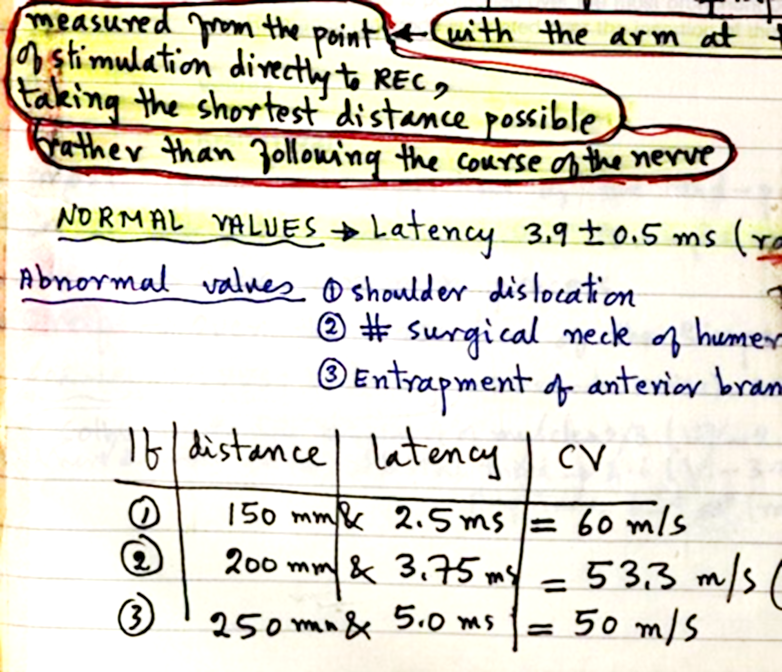 measured from the point ← with the arm at
of stimulation directly to REC,
taking the shortest distance possible
rather than following the course of the nerve
NORMAL VALUES → Latency 3.9 ± 0.5 ms (
Abnormal values ① shoulder dislocation
② # surgical neck of humer
③ Entrapment of anterior bran
If distance latency CV
① 150 mm & 2.5 ms = 60 m/s
② 200 mm & 3.75 ms = 53.3 m/s (
③ 250 mm & 5.0 ms = 50 m/s